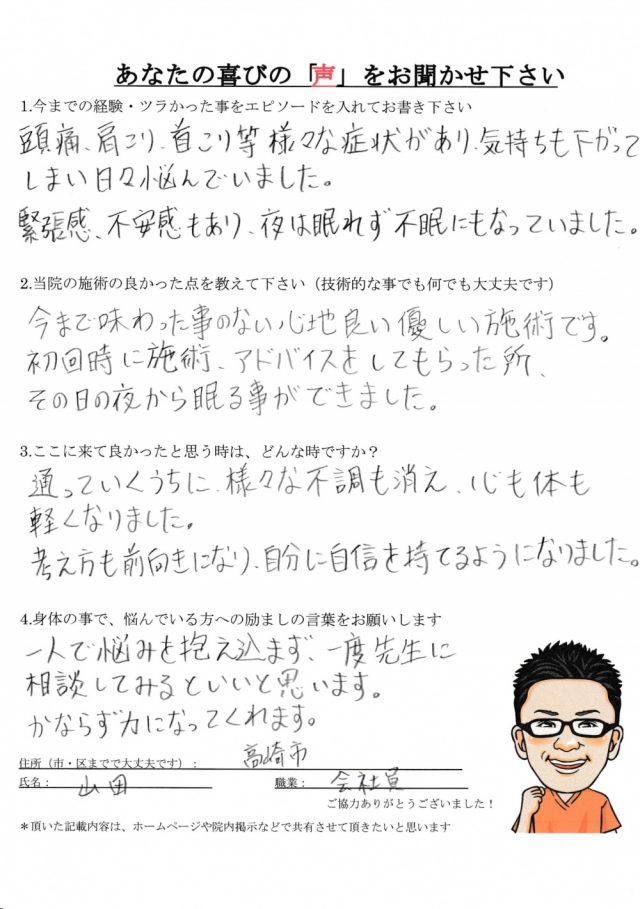 あなたの喜びの「声」をお聞かせ下さい
1.今までの経験・ツラかった事をエピソードを入れてお書き下さい
頭痛、肩こり、首こり等様々な症状があり、気持ちも下がって
しまい日々悩んでいました。
緊張感、不安感もあり、夜は眠れず不眠にもなっていました。
2.当院の施術の良かった点を教えて下さい（技術的な事でも何でも大丈夫です）
今まで味わった事のない心地良い優しい施術です。
初回時に施術、アドバイスをしてもらった所、
その日の夜から眠る事ができました。
3.ここに来て良かったと思う時は、どんな時ですか？
通っていくうちに、様々な不調も消え、心も体も
軽くなりました。
考え方も前向きになり、自分に自信を持てるようになりました。
4.身体の事で、悩んでいる方への励ましの言葉をお願いします
一人で悩みを抱え込まず、一度先生に
相談してみるといいと思います。
かならず力になってくれます。
住所（市・区までで大丈夫です）： 高崎市
氏名： 山田 職業： 会社員
ご協力ありがとうございました！
＊頂いた記載内容は、ホームページや院内掲示などで共有させて頂きたいと思います